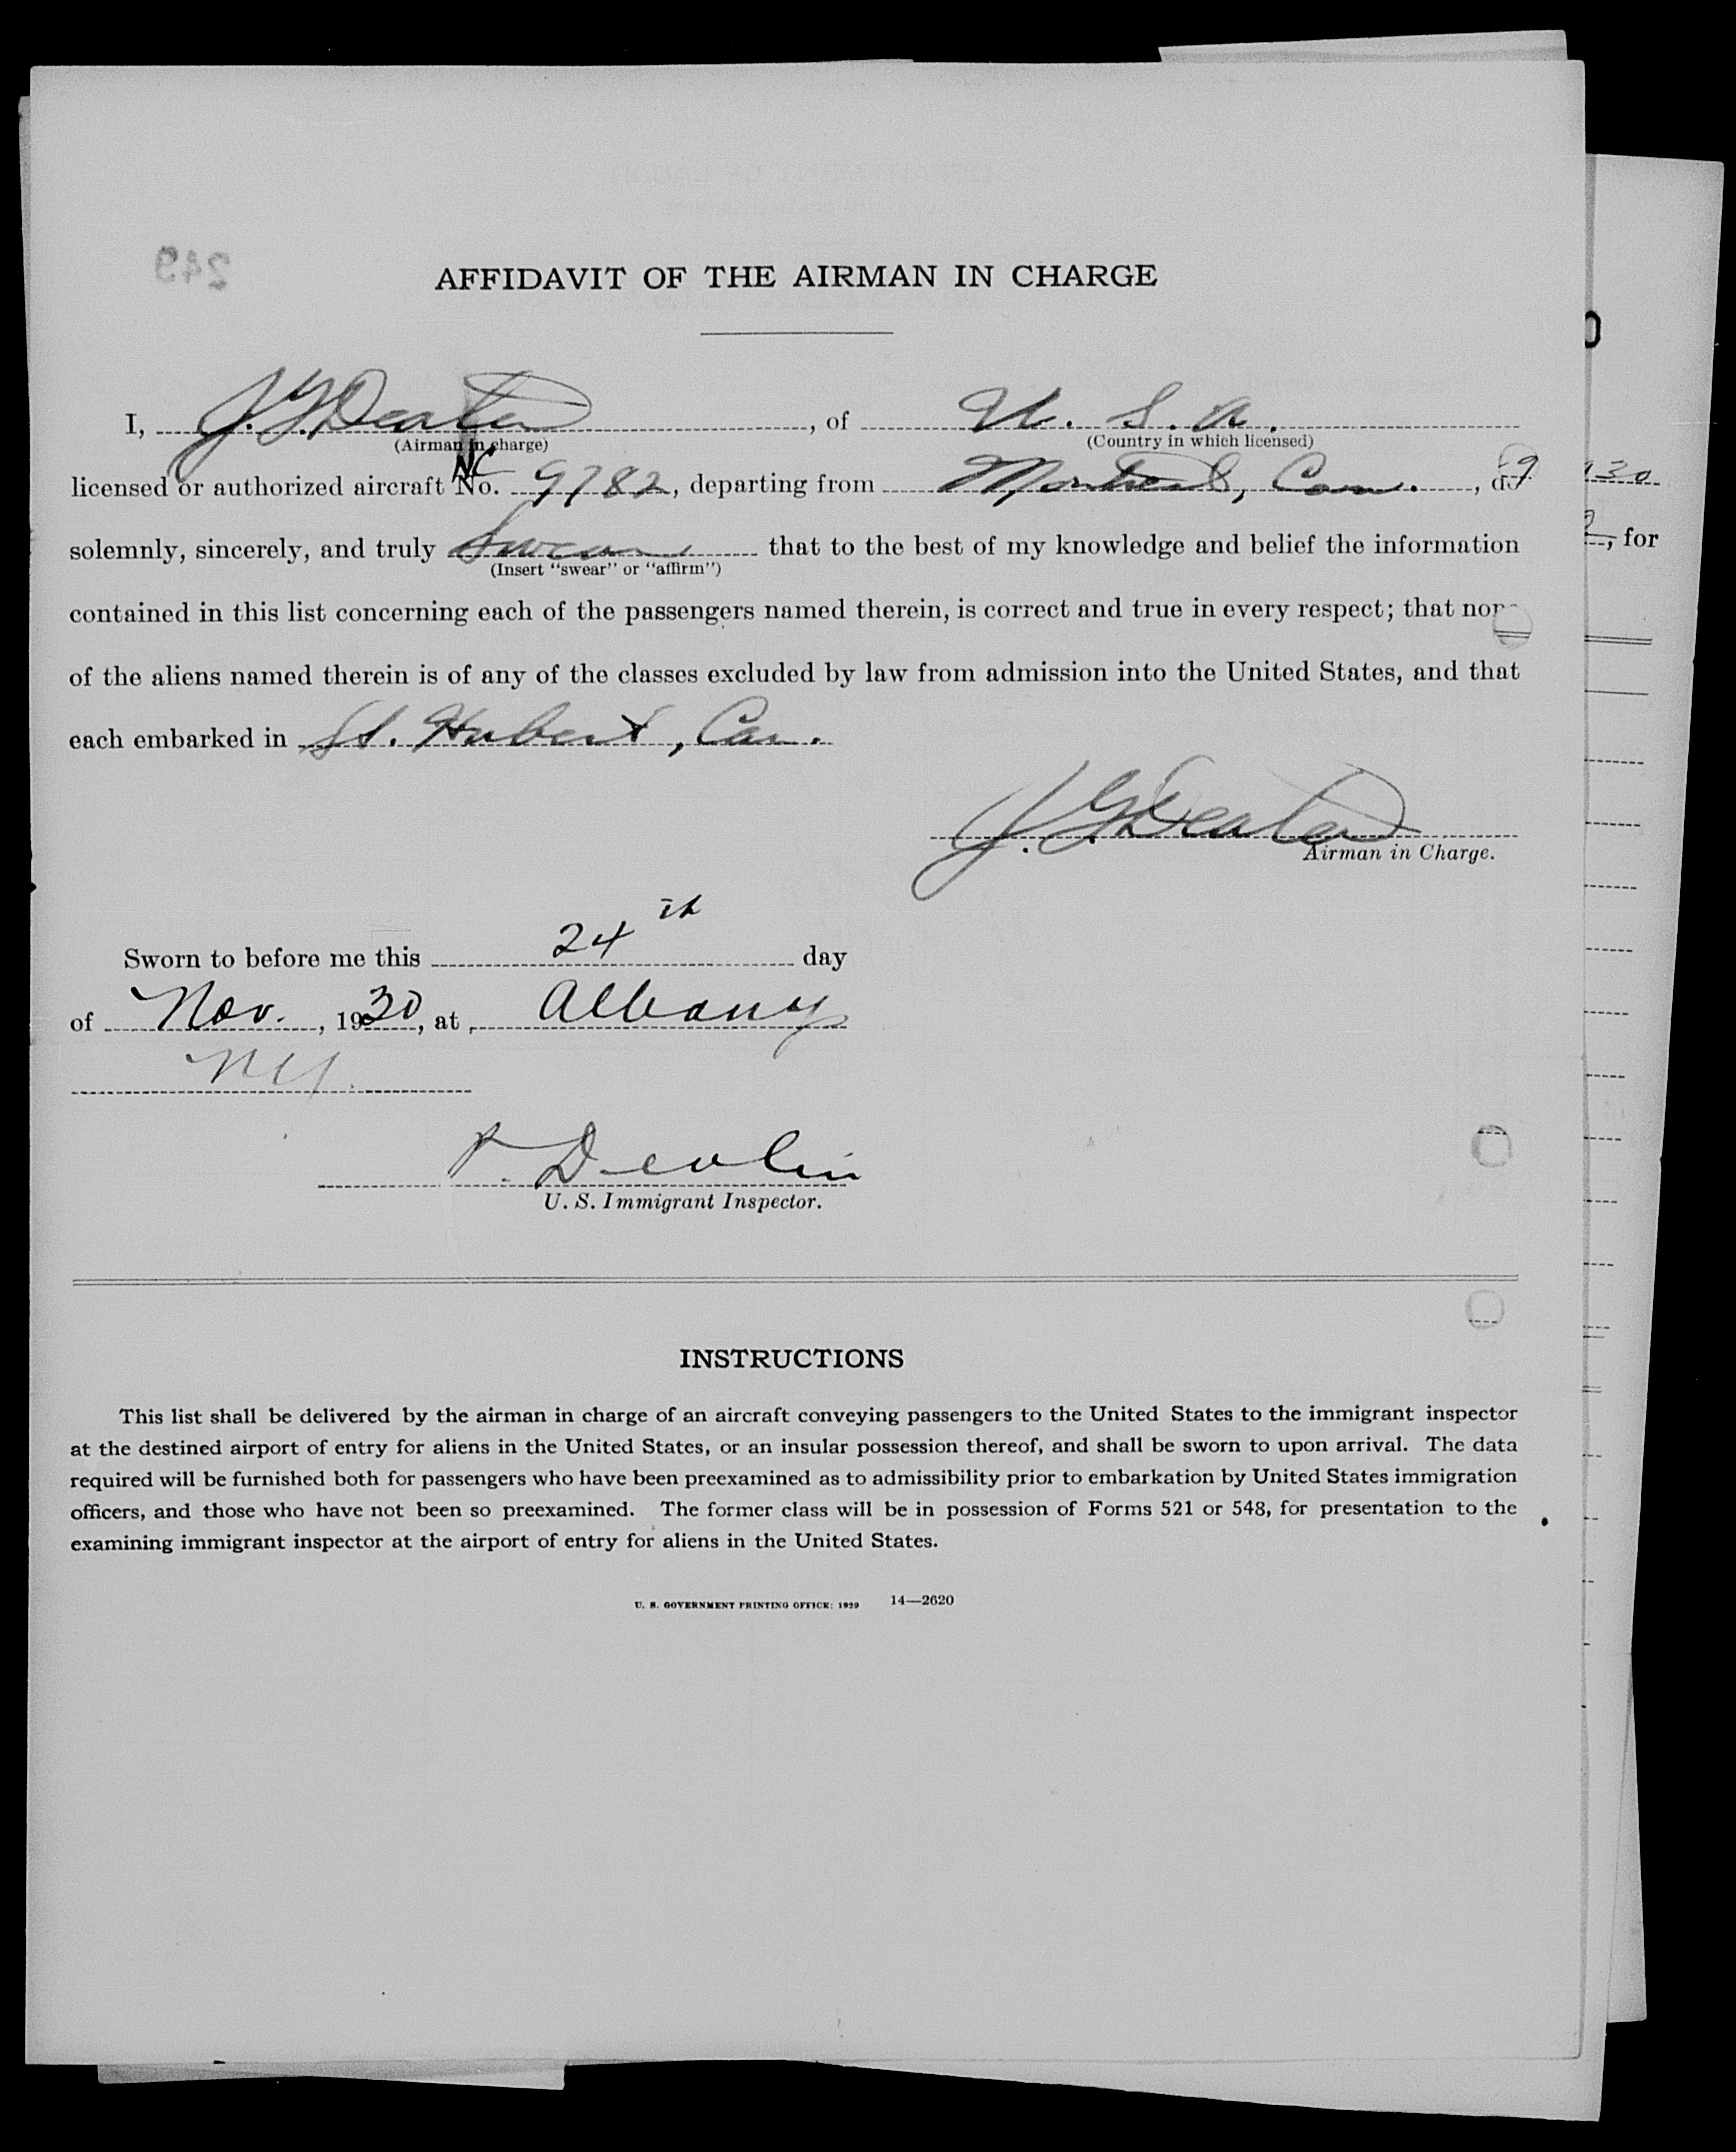 249
AFFIDAVIT OF THE AIRMAN IN CHARGE
I, J. G. Deater, of U. S. A.
(Airman in charge) (Country in which licensed)
NC
licensed or authorized aircraft No. 9782, departing from Montreal, Can., do
solemnly, sincerely, and truly swear that to the best of my knowledge and belief the information
(Insert "swear" or "affirm")
contained in this list concerning each of the passengers named therein, is correct and true in every respect; that none
of the aliens named therein is of any of the classes excluded by law from admission into the United States, and that
each embarked in St. Hubert, Can.
J. G. Deater
Airman in Charge.
Sworn to before me this 24th day
of Nov., 1930, at Albany
NY.
P. Devlin
U. S. Immigrant Inspector.
INSTRUCTIONS
This list shall be delivered by the airman in charge of an aircraft conveying passengers to the United States to the immigrant inspector
at the destined airport of entry for aliens in the United States, or an insular possession thereof, and shall be sworn to upon arrival. The data
required will be furnished both for passengers who have been preexamined as to admissibility prior to embarkation by United States immigration
officers, and those who have not been so preexamined. The former class will be in possession of Forms 521 or 548, for presentation to the
examining immigrant inspector at the airport of entry for aliens in the United States.
U. S. GOVERNMENT PRINTING OFFICE: 1929 14—2620
130
, for